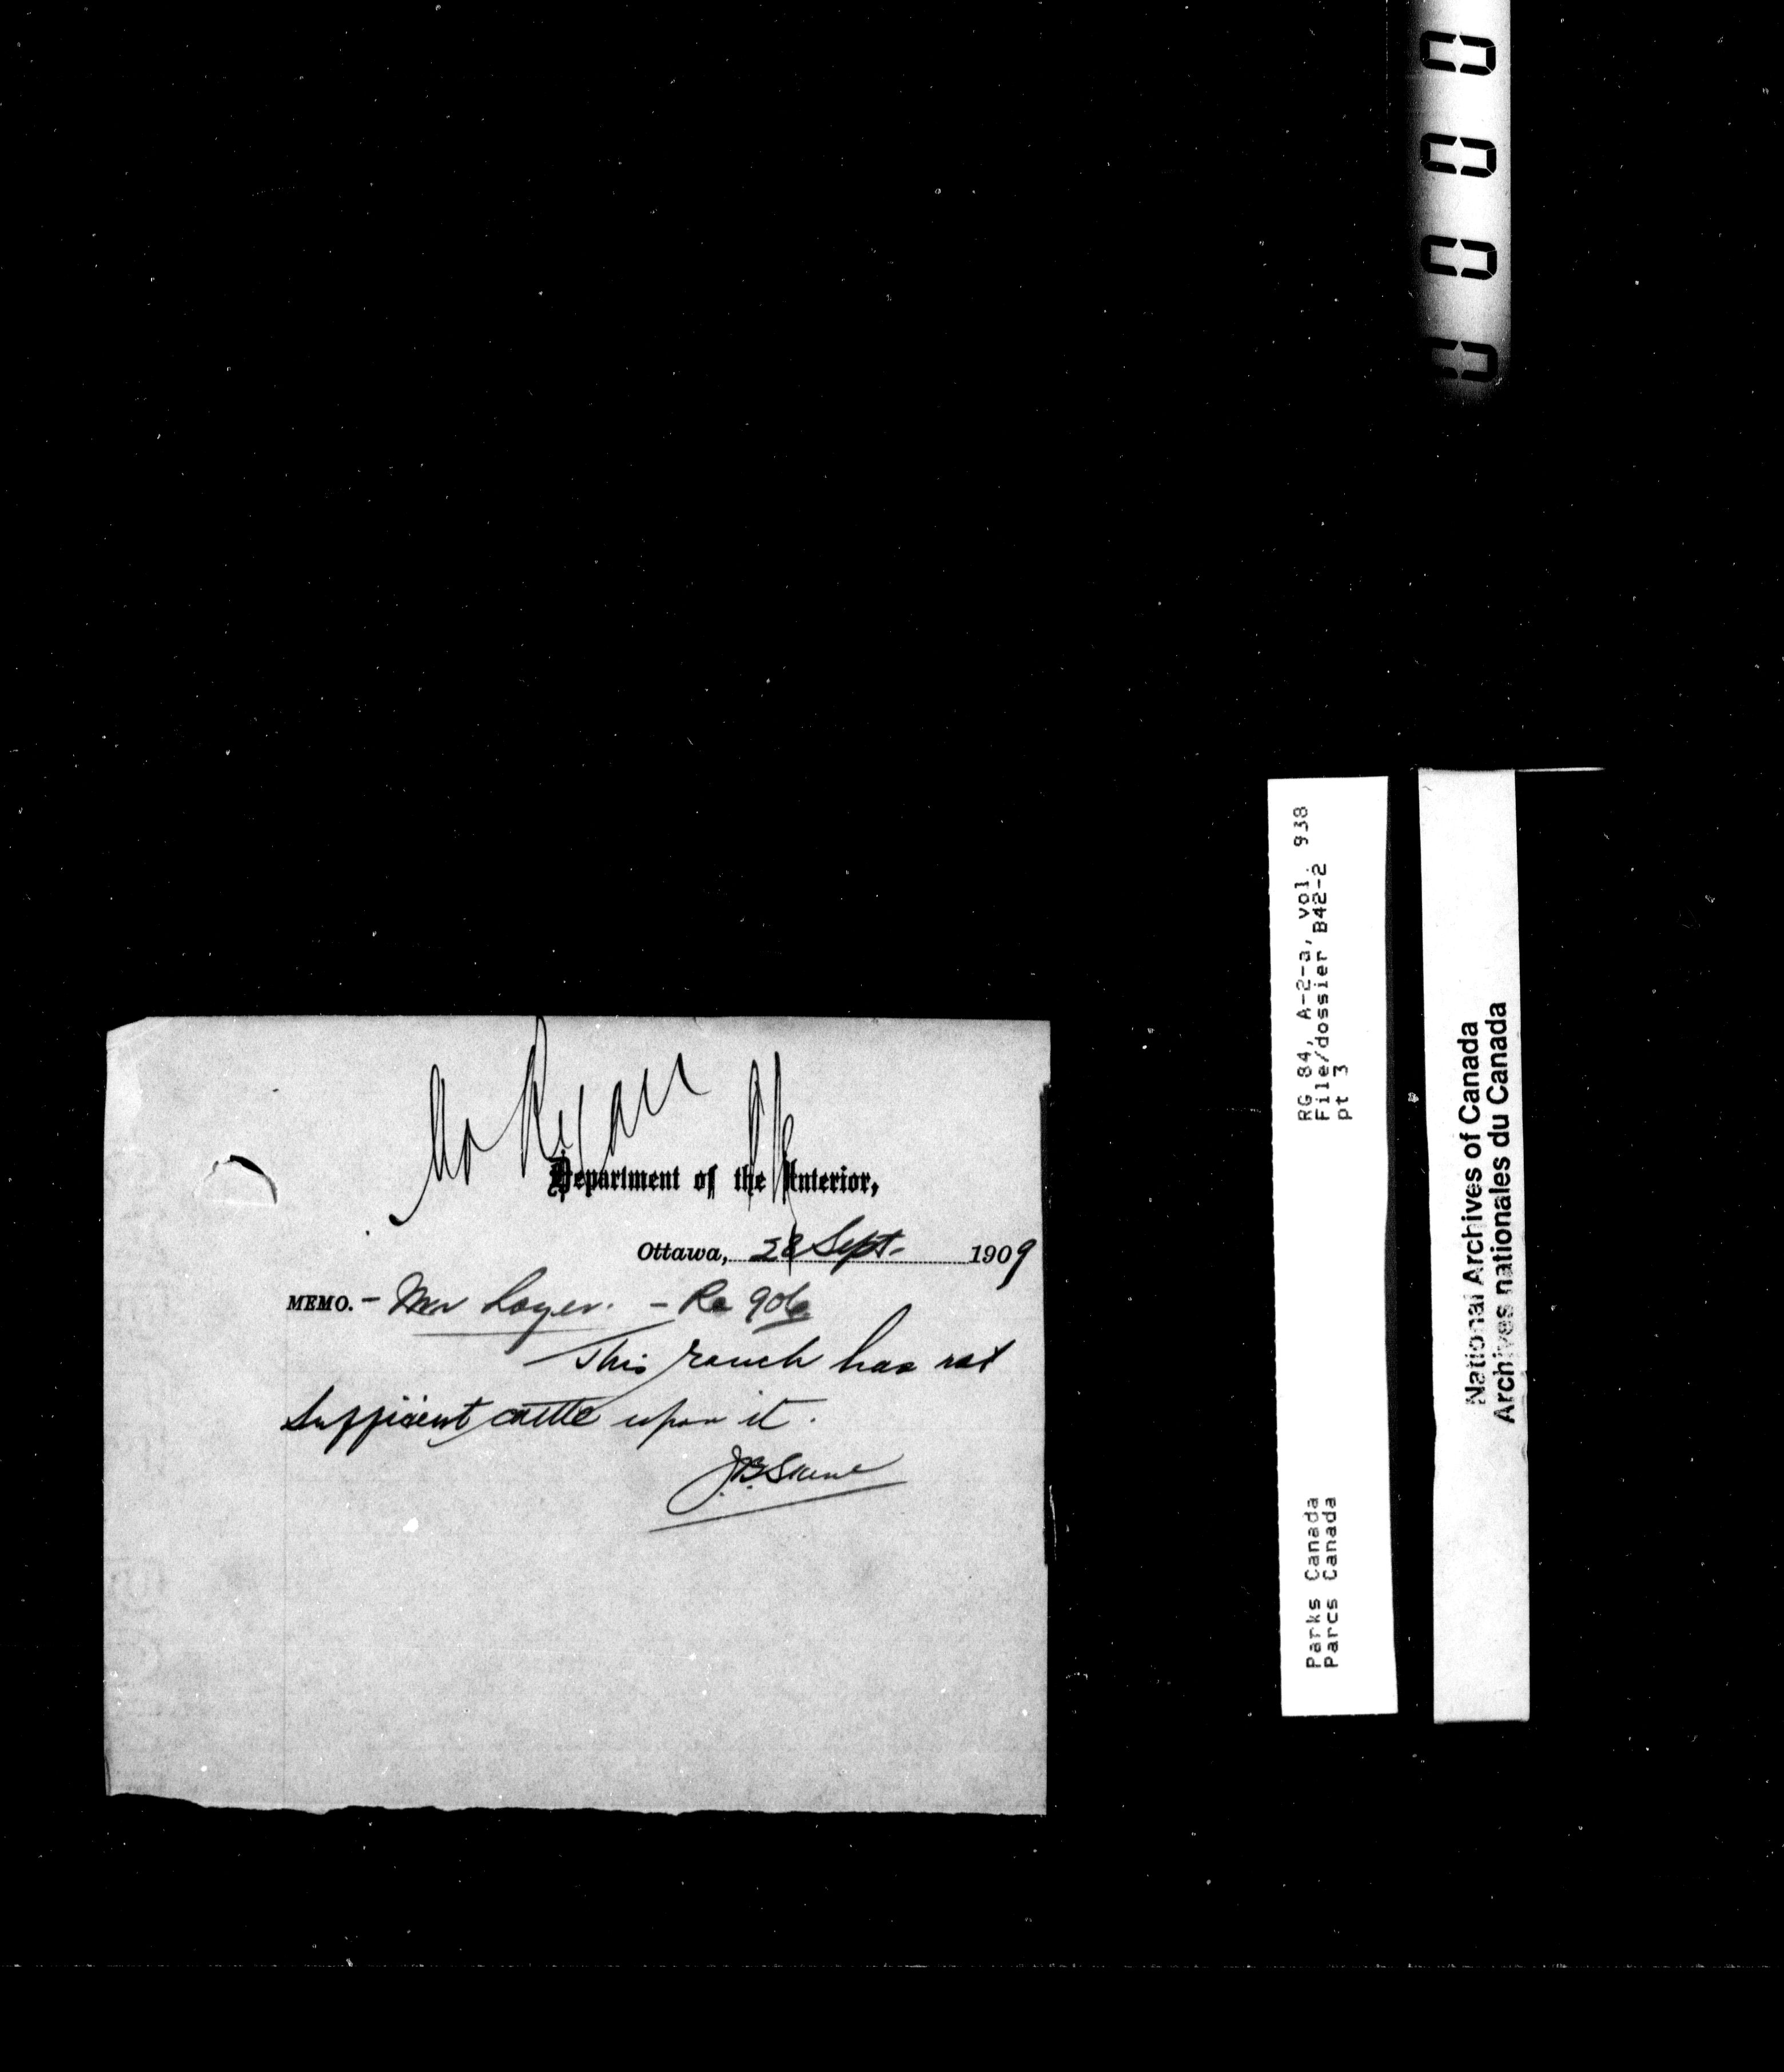 Mr Ryan
Department of the Interior,
Ottawa, 28 Sept. 1909
MEMO. - Mr - Re 906
This ranch has not
sufficient cattle upon it.
J.B.
RG 84, A-2-a, vol. 938
File/dossier B42-2
pt 3
Parks Canada
Parcs Canada
National Archives of Canada
Archives nationales du Canada
0000